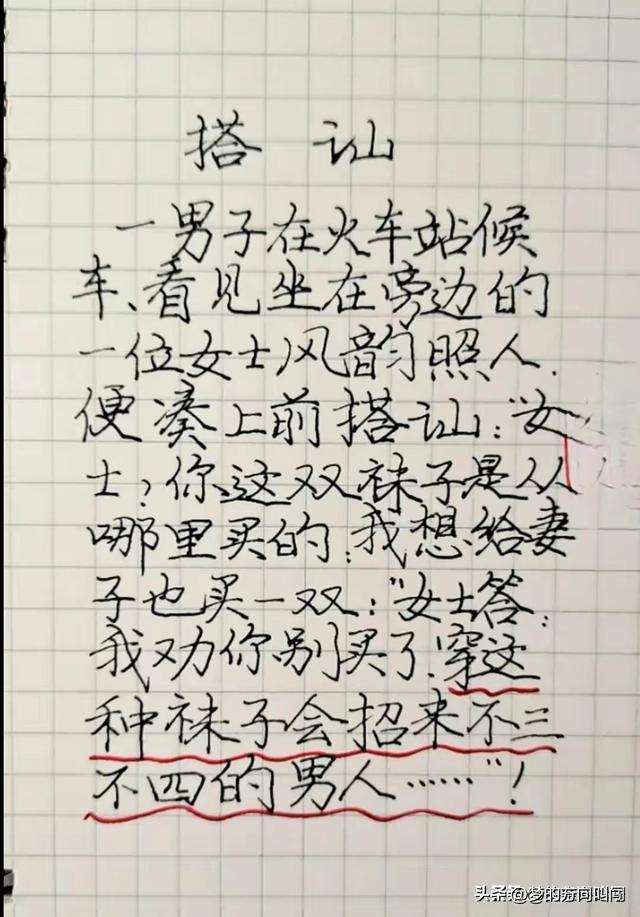 搭讪
一男子在火车站候
车、看见坐在旁边的
一位女士风韵照人.
便凑上前搭讪:“女
士,你这双袜子是从
哪里买的,我想给妻
子也买一双:“女士答:
我劝你别买了.穿这
种袜子会招来不三
不四的男人……”!
头条@梦的方向叫闯